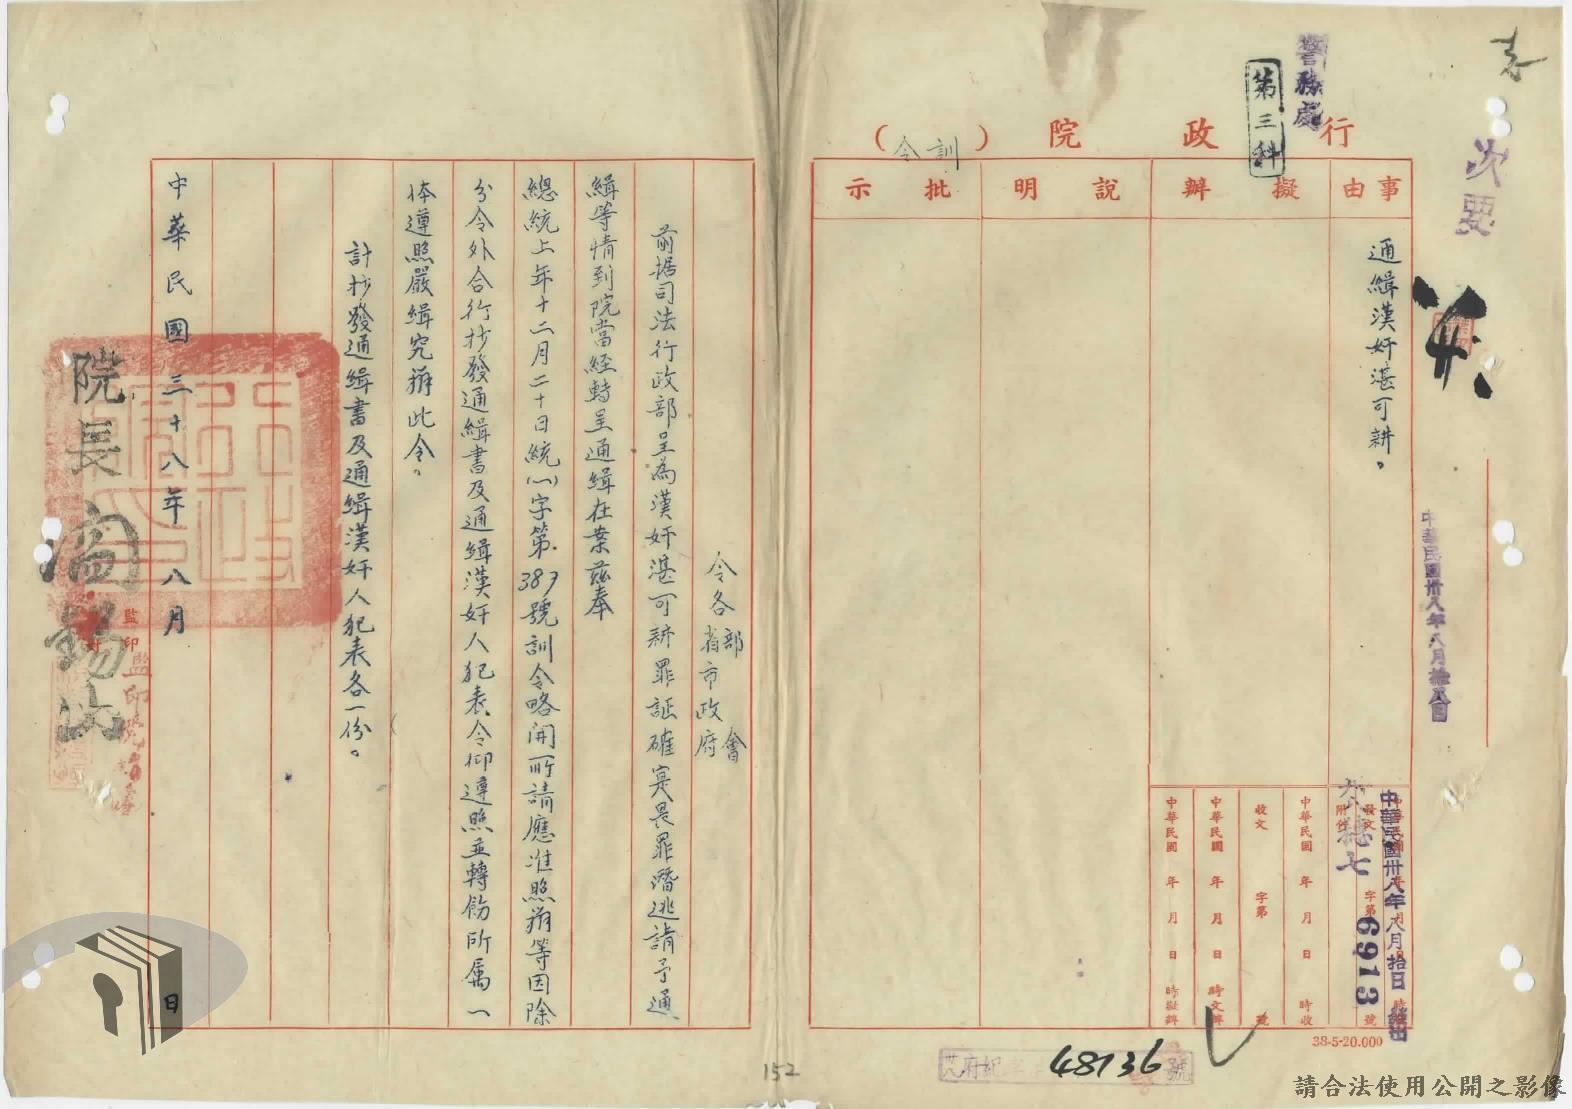 行政院（訓令）
警務處
第三科
次要
事由
擬辦
說明
批示
通緝漢奸湛可耕。
中華民國卅八年八月
中華民國卅八年八月拾日
發文
字第6913號
附件
中華民國 年 月 日 時收
收文 字第 號
中華民國 年 月 日 時交辦
中華民國 年 月 日 時擬辦
38-5-20.000
48136
號
令各部會
省市政府
前据司法行政部呈為漢奸湛可耕罪証確寔畏罪潛逃請予通
緝等情到院當經轉呈通緝在案茲奉
總統上年十二月二十日統(一)字第387號訓令略開所請應准照辦等因除
分令外合行抄發通緝書及通緝漢奸人犯表令仰遵照並轉飭所屬一
体遵照嚴緝究辦此令。
計抄發通緝書及通緝漢奸人犯表各一份。
中華民國三十八年八月 日
院長閻錫山
監印
152
請合法使用公開之影像